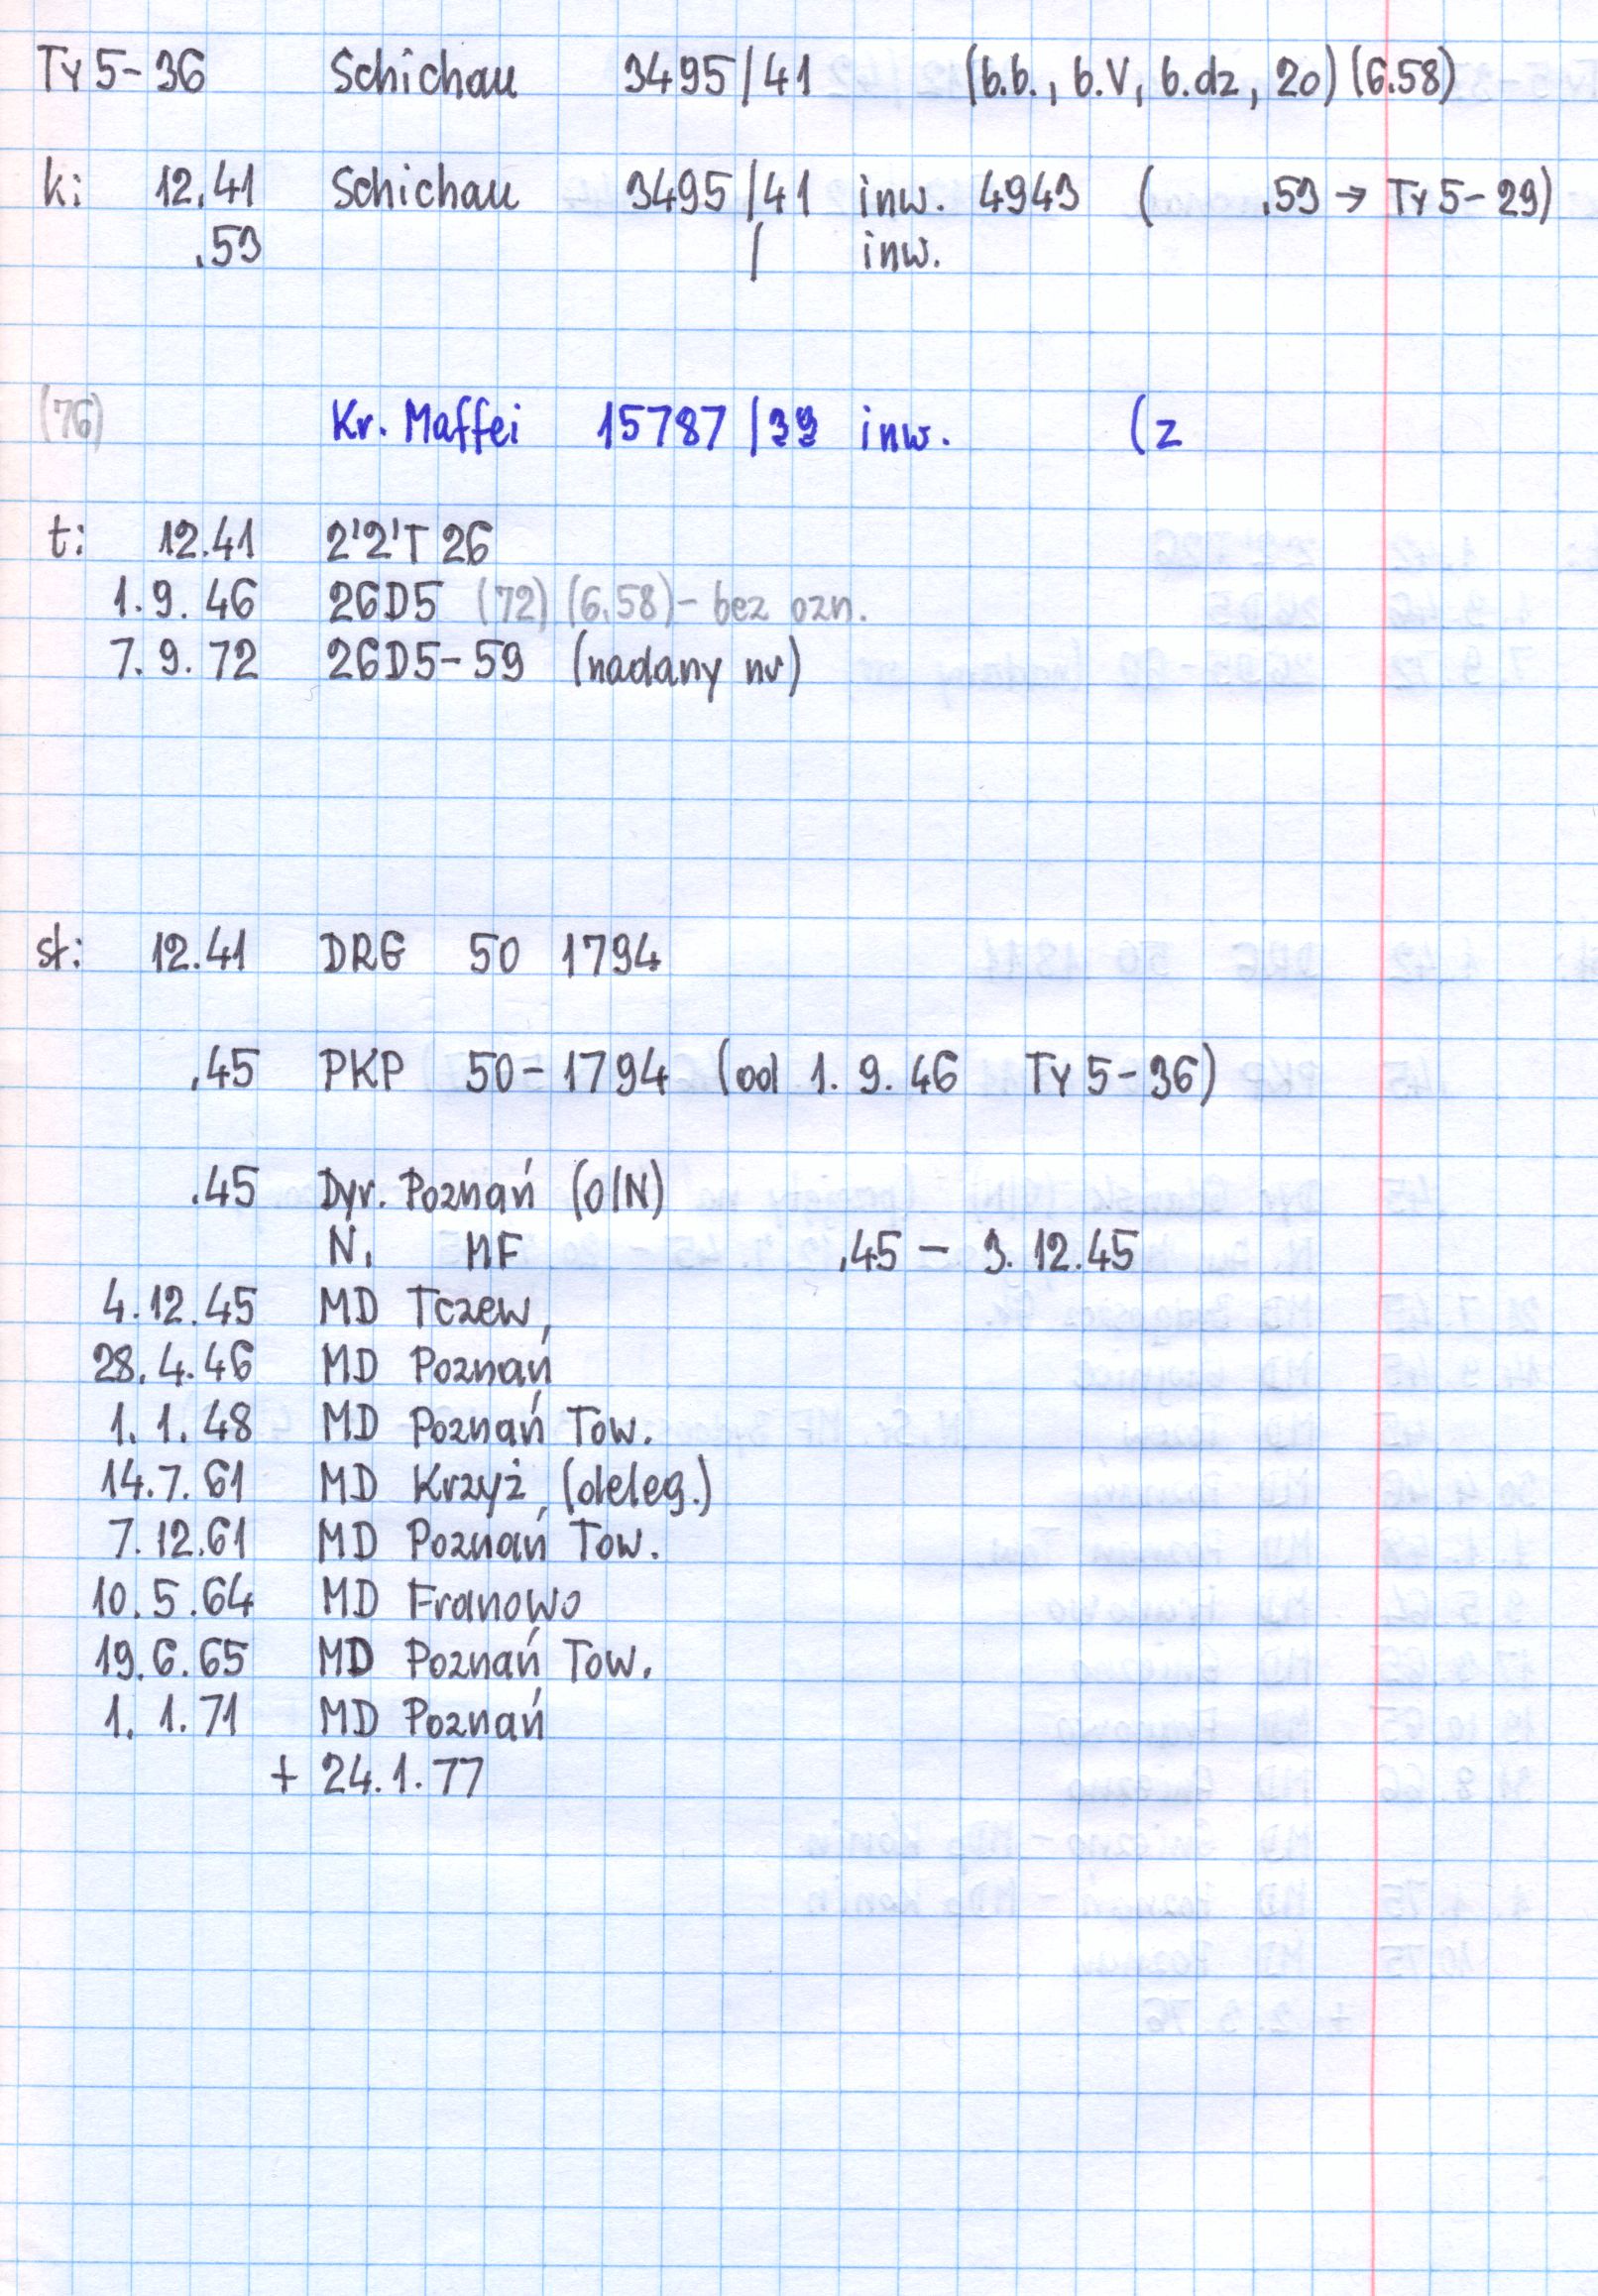 Ty5-36 Schichau 3495/41 (b.b., b.V, b.dz, 20) (6.58)
k: 12.41 Schichau 3495/41 inw. 4943 ( .59 → Ty5-29)
.59 / inw.
(76) Kr. Maffei 15787/39 inw. (z
t: 12.41 2'2'T 26
1.9.46 26D5 (72) (6.58) - bez ozn.
7.9.72 26D5-59 (nadany nr)
st: 12.41 DRG 50 1794
.45 PKP 50-1794 (od 1.9.46 Ty5-36)
.45 Dyr. Poznań (O/N)
N. MF .45 - 3.12.45
4.12.45 MD Tczew,
28.4.46 MD Poznań
1.1.48 MD Poznań Tow.
14.7.61 MD Krzyż, (deleg.)
7.12.61 MD Poznań Tow.
10.5.64 MD Franowo
19.6.65 MD Poznań Tow.
1.1.71 MD Poznań
+ 24.1.77